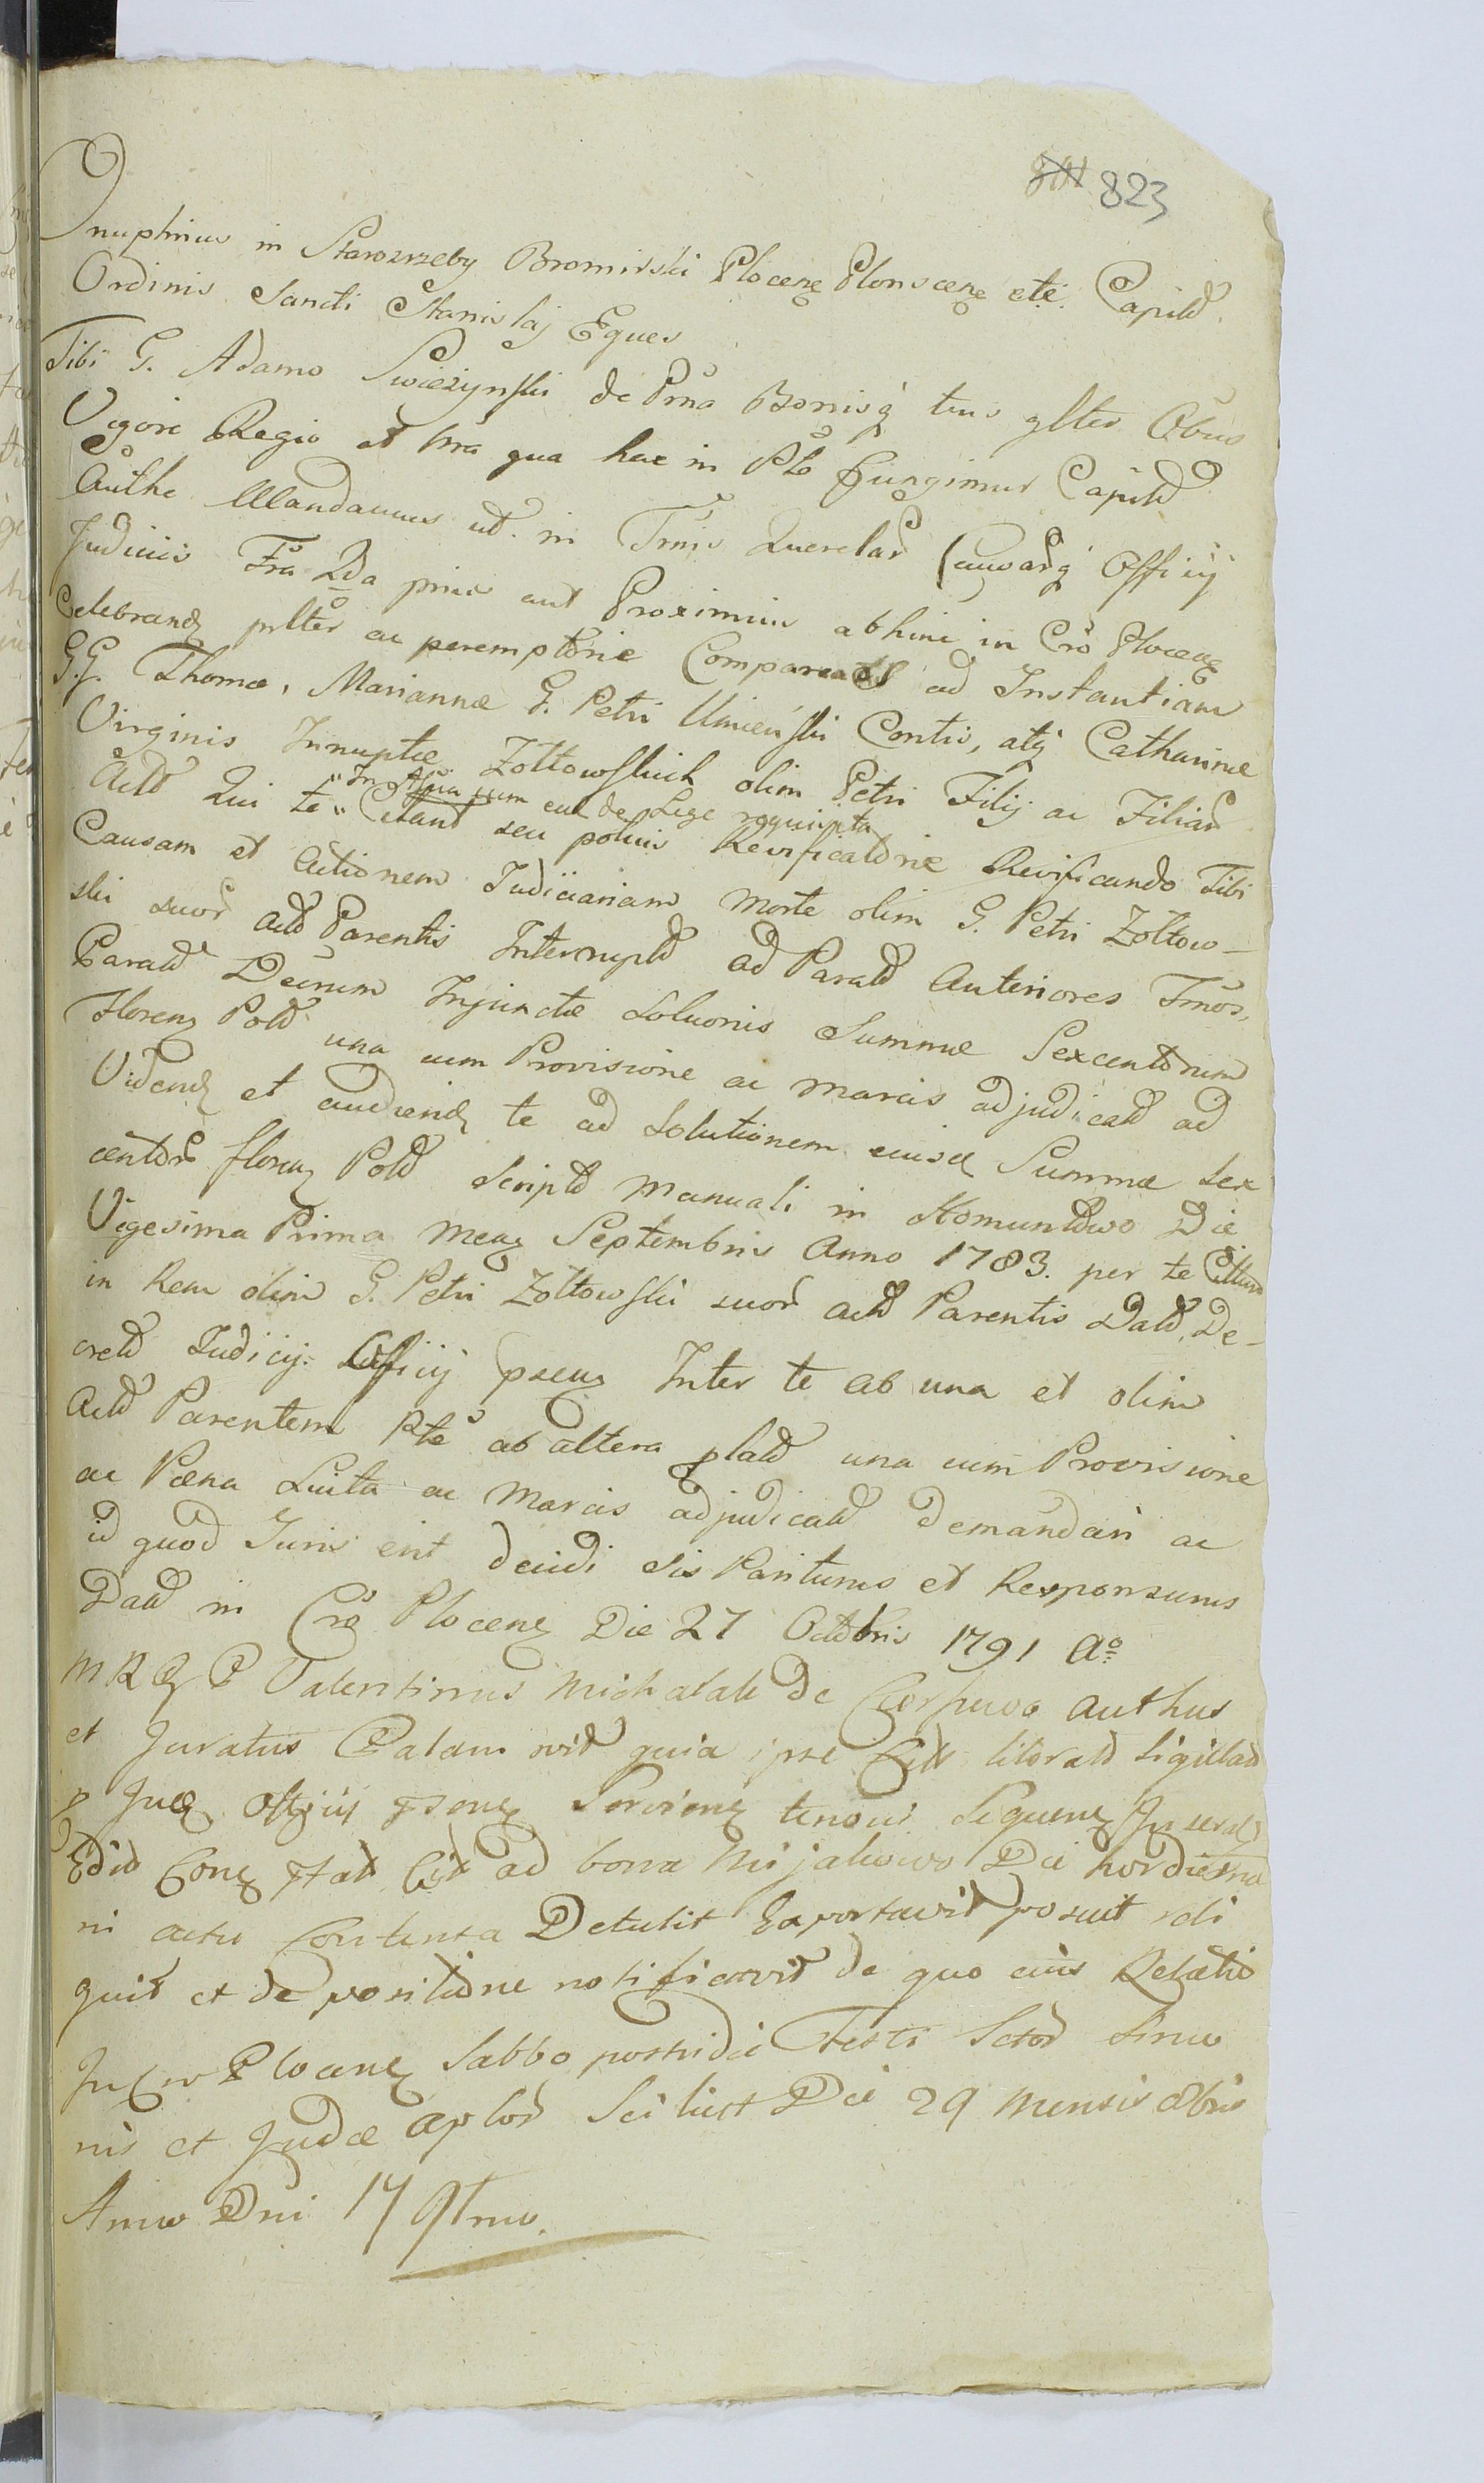 823
Onuphrius in Starozrzeby Bromirski Plocenę Plonscenę etc. Capitd
Ordinis Sancti Stanislaj Eques
Tibi G. Adamo de Prna Bonisq tuis glter Obus
Vigore Regio et Nra qua hac in Pte fungimur Capitd
Authe Mandamus ut in Trnis Querelar Causarq Officij
Judicijs Fra 2da prius aut Proximius abhinc in Cro Plocenę
Celebrandę prlter ac peremptorie Compareas ad Instantiam
G.G. Thomæ, Mariannæ G. Petri Umieński Contis, atq Catharinæ
Virginis Innuptæ Zołtowskich olim Petri Filij ac Filiar
"In Assia cum eul de Lege requisita
Actd Qui te " Citant seu potius Revificatorie Revificando Tibi
Causam et Actionem Judiciariam Morte olim G. Petri Zołtow-
ski suor actd Parentis Interruptd ad Paratd Anteriores Trnos,
Paratd Decrum Injunctæ Soluonis Summæ Sexcentorum
Florenę Pold una cum Provisione ac marcis adjudicatd ad
Videndę et audiendę te ad Solutionem eiusdę Summæ sex
centor florenę Pold Scriptd Manuali in Die
Vigesima Prima Menę Septembris Anno 1783. per te Cittum
in Rem olim G. Petri Zołtowski suor actd Parentis Datd, De-
cretd Judicij Officij pręnę Inter te ab una et olim
Actd Parentem Pte ab altera platd una cum Provisione
ac Pæna Luita ac Marcis adjudicatd demandari ac
id quod Juris erit decidi sis Pariturus et Responsurus
Datd in Cro Plocenę Die 27 Octobris 1791 Ao
M R P Valentinus Michalak de authus
et Juratus Palam rvit quia ipse Citt literatd Sigillatd
p Judę Offij Servienę tenoris Sequenę Inseratd
Edid Citt ad bona Mijakowo Die hordierna
in actu Contenta Detulit Exportavit posuit reli
quit et de positione notificavit de quo eius Relatio
In Cro Plocenę Sabbo postridie Festi Sctor Simo
nis et Judæ Aplor Scilicet Die 29 Mensis 8bris
Anno Dni 1791mo.